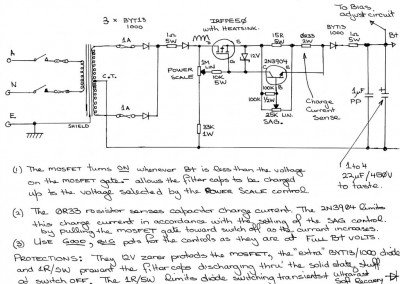 3 x BYT13
1000
IRFPE50
with HEATSINK.
To Bias,
adjust circuit
1A
1n
5W
15R
5W
0R33
2W
BYT13
1000
1n
5W
B+
A
N
E
12V
2N3904
C
B
E
POWER
SCALE
1M
LIN
10K
.5W
100R
½W
100K
25K LIN.
SAG.
Charge
Current
Sense
1µF
PP
C.T.
1A
SHIELD
33K
1W
1 to 4
22µF/450V
to taste.
(1) The MOSFET turns ON whenever B+ is less than the voltage
on the MOSFET gate - allows the filter caps to be charged
up to the voltage selected by the POWER SCALE control
(2) The 0R33 resistor senses charge current. The 2N3904 limits
this charge current in accordance with the setting of the SAG control.
by pulling the mosfet gate toward switch off as the current increases.
(3) Use GOOD, BIG pots for the controls as they are at Full B+ VOLTS.
PROTECTIONS: They 12V zener protects the MOSFET, the "extra" BYT13/1000 diode
and 1R/5W prevent the filter caps discharging thru' the solid state stuff
at switch OFF. The 1R/5W limits diode switching transients
Ultrafast
Soft Recovery